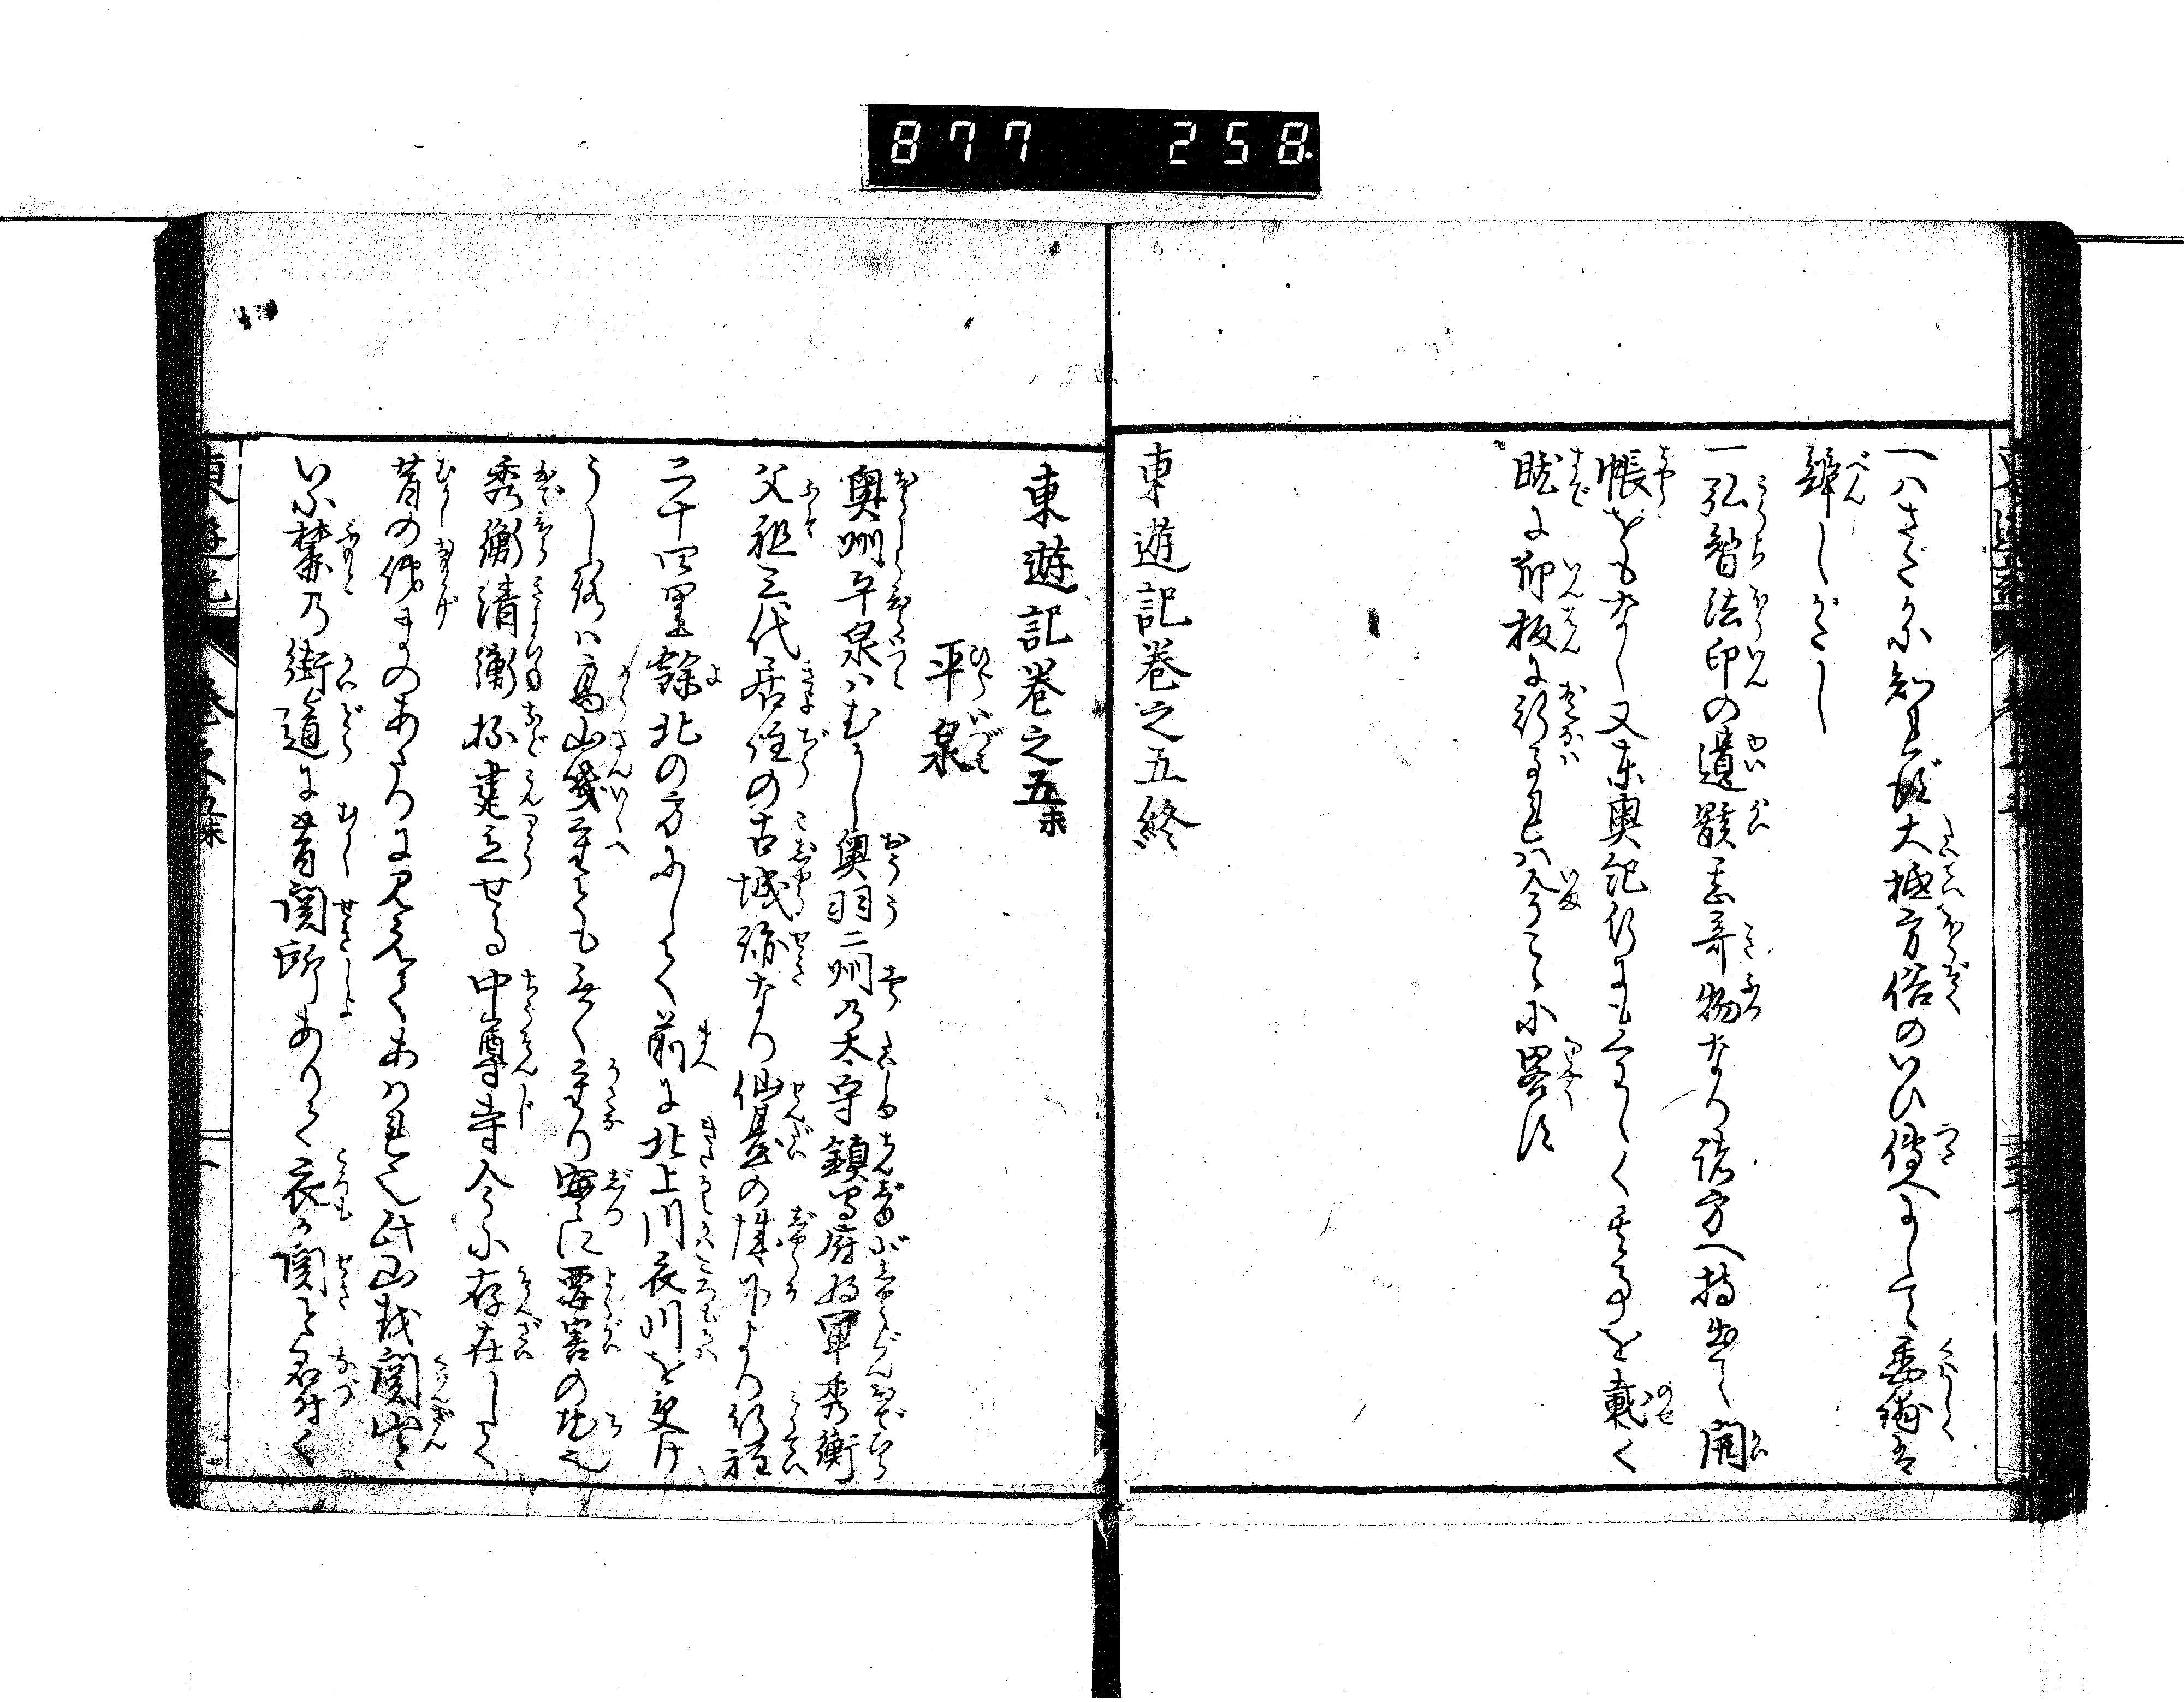 877 258
一八さだかに知れず大抵方俗のいひ傳へにして委鋪は
辯しがたし
一弘智法印の遺骸甚奇物なり諸方へ持出て開
帳をもなし又東奥紀行にもくわしく其事を載く
既に印板に行るれハ今こゝに畧す
東遊記巻之五終
東遊記巻之五末
平泉
奥州平泉ハむかし奥羽二州乃太守鎮守府将軍秀衡
父祖三代居住の古城跡なり仙臺の城下より行程
二十四里餘北の方にして前に北上川衣川を受け
うしろハ高山幾重ともなく重り実に要害の地也
秀衡清衡抔建立せる中尊寺今に存在して
昔の俤まのあたりに見えてあハれ也此山を関山と
いふ麓乃街道に昔関所ありて衣が関と名付く
東遊記 巻之五末 一